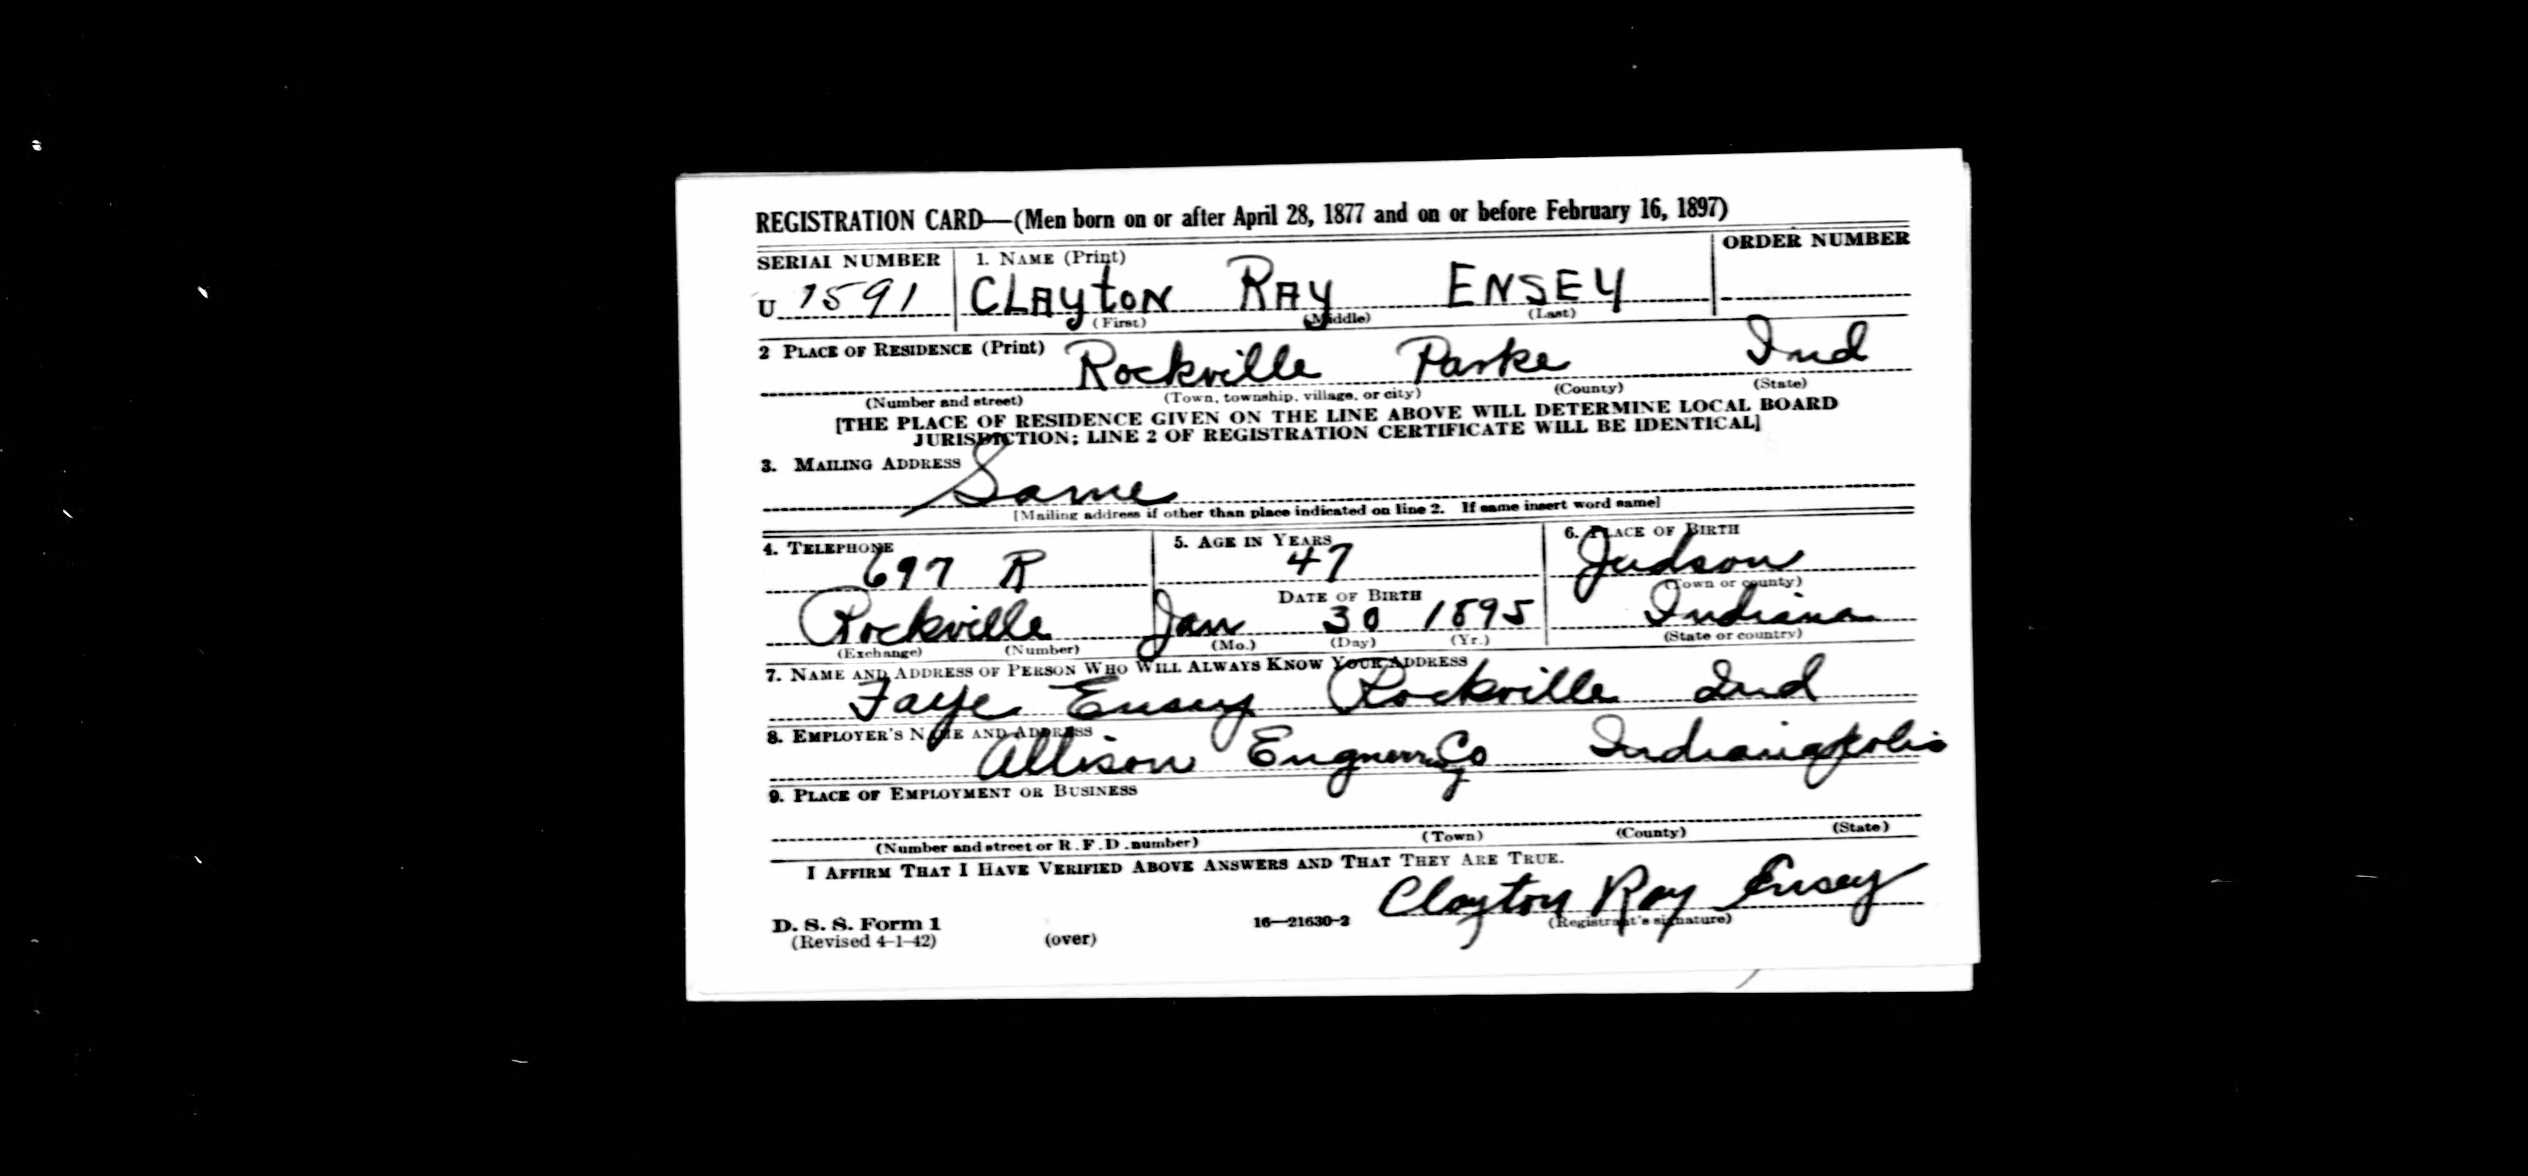 REGISTRATION CARD—(Men born on or after April 28, 1877 and on or before February 16, 1897)
SERIAL NUMBER 1. NAME (Print) ORDER NUMBER
U 1591 CLAytoN RAy ENSEY
(First) (Middle) (Last)
2 PLACE OF RESIDENCE (Print) Rockville Parke Ind
(Number and street) (Town, township, village, or city) (County) (State)
[THE PLACE OF RESIDENCE GIVEN ON THE LINE ABOVE WILL DETERMINE LOCAL BOARD
JURISDICTION; LINE 2 OF REGISTRATION CERTIFICATE WILL BE IDENTICAL]
3. MAILING ADDRESS
Same
[Mailing address if other than place indicated on line 2. If same insert word same]
4. TELEPHONE 5. AGE IN YEARS 6. PLACE OF BIRTH
697 R 47 Judson
(Town or county)
DATE OF BIRTH
Rockville Jan 30 1895 Indiana
(Exchange) (Number) (Mo.) (Day) (Yr.) (State or country)
7. NAME AND ADDRESS OF PERSON WHO WILL ALWAYS KNOW YOUR ADDRESS
Faye Ensey Rockville Ind
8. EMPLOYER'S NAME AND ADDRESS
Allison Co Indianapolis
9. PLACE OF EMPLOYMENT OR BUSINESS
(Number and street or R.F.D. number) (Town) (County) (State)
I AFFIRM THAT I HAVE VERIFIED ABOVE ANSWERS AND THAT THEY ARE TRUE.
Clayton Ray Ensey
D. S. S. Form 1 16—21630-2 (Registrant's signature)
(Revised 4-1-42) (over)